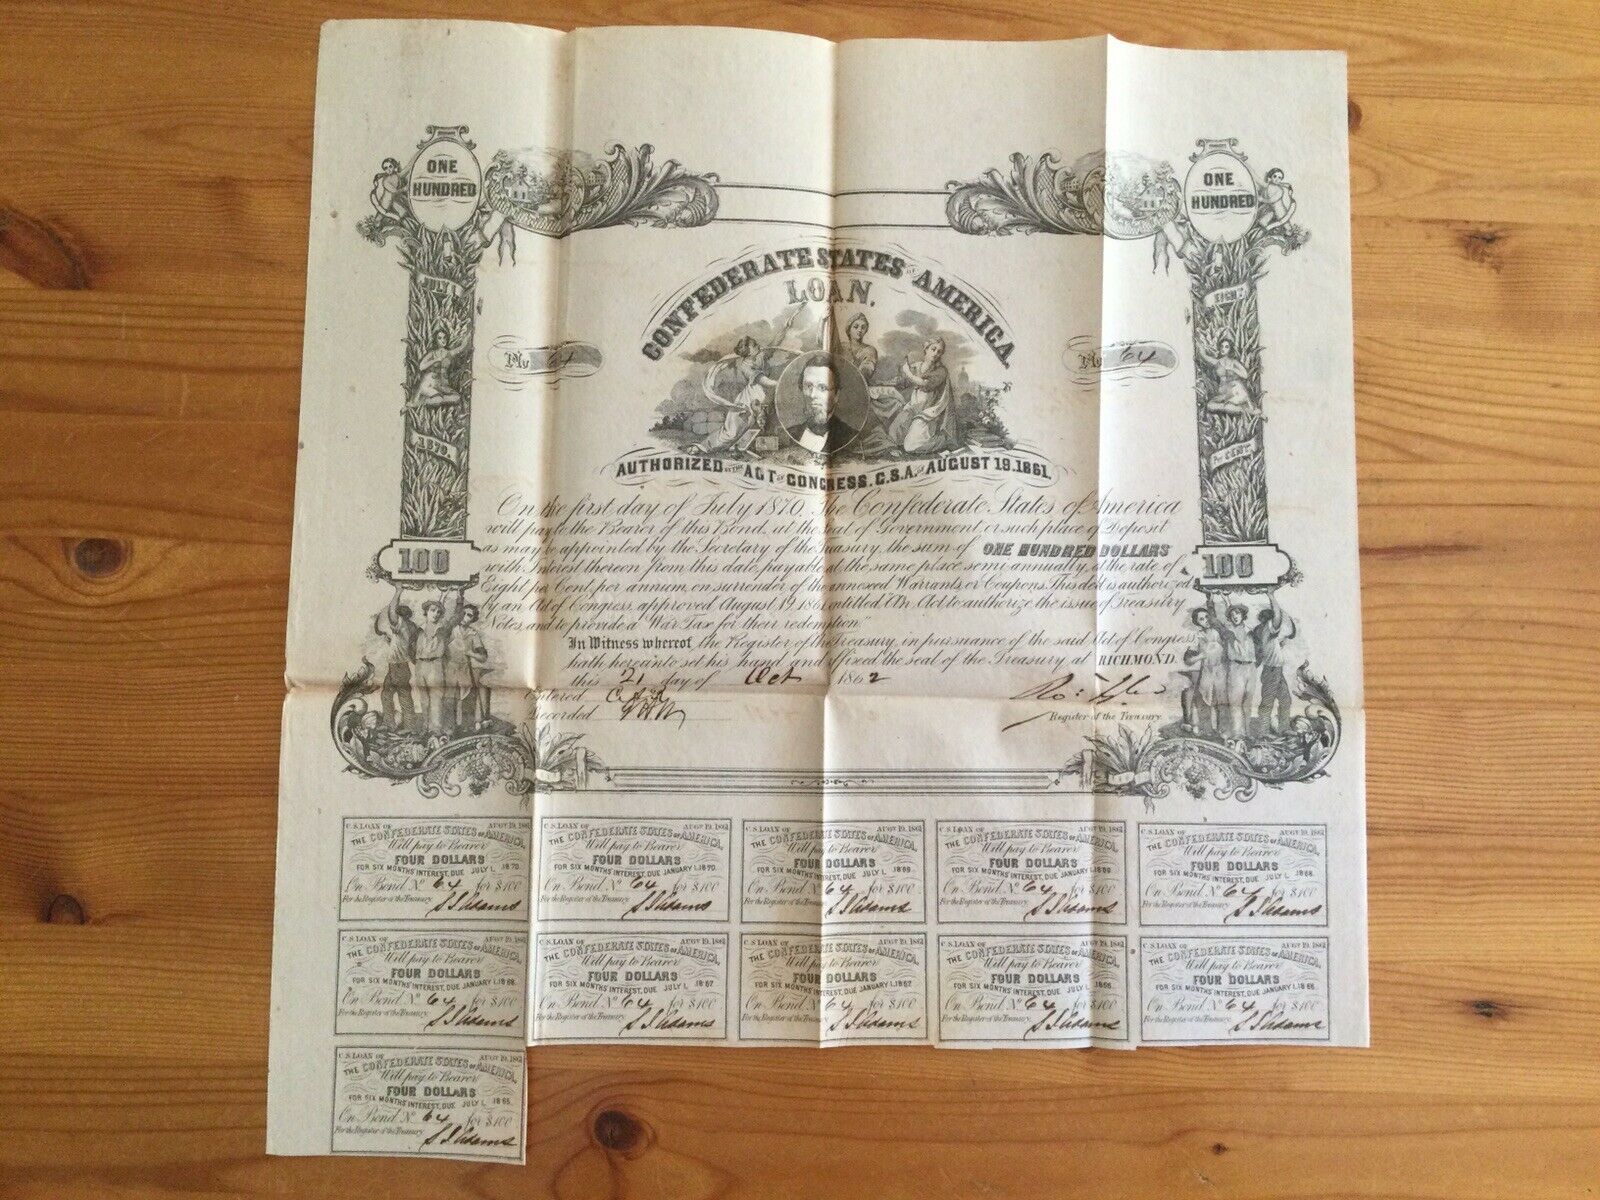 ONE HUNDRED
ONE HUNDRED
JULY 1.
EIGHT
CONFEDERATE STATES OF AMERICA
LOAN.
No 64
No 64
1870.
PER CENT.
AUTHORIZED BY THE ACT OF CONGRESS. C.S.A. OF AUGUST 19. 1861.
On the first day of July 1870, The Confederate States of America
will pay to the Bearer of this Bond, at the Seat of Government, or such place of Deposit
as may be appointed by the Secretary of the Treasury, the sum of ONE HUNDRED DOLLARS
with Interest thereon from this date, payable at the same place semi annually, at the rate of
Eight per Cent, per annum, on surrender of the annexed Warrants or Coupons. This debt is authorized
by an Act of Congress, approved August 19, 1861, entitled "An Act to authorize the issue of Treasury
Notes, and to provide a War Tax for their redemption."
100
100
In Witness whereof, the Register of the Treasury, in pursuance of the said Act of Congress
hath hereunto set his hand and affixed the seal of the Treasury at RICHMOND
this 21 day of Oct 1862
Entered
Recorded
Ro: Tyler
Register of the Treasury.
C.S. LOAN OF AUGT 19, 1861
THE CONFEDERATE STATES OF AMERICA,
Will pay to Bearer
FOUR DOLLARS
FOR SIX MONTHS' INTEREST, DUE JULY 1, 1870.
On Bond No 64 for $100
For the Register of the Treasury. S J Adams
C.S. LOAN OF AUGT 19, 1861
THE CONFEDERATE STATES OF AMERICA,
Will pay to Bearer
FOUR DOLLARS
FOR SIX MONTHS' INTEREST, DUE JANUARY 1, 1870.
On Bond No 64 for $100
For the Register of the Treasury. S J Adams
C.S. LOAN OF AUGT 19, 1861
THE CONFEDERATE STATES OF AMERICA,
Will pay to Bearer
FOUR DOLLARS
FOR SIX MONTHS' INTEREST, DUE JULY 1, 1869.
On Bond No 64 for $100
For the Register of the Treasury. S J Adams
C.S. LOAN OF AUGT 19, 1861
THE CONFEDERATE STATES OF AMERICA,
Will pay to Bearer
FOUR DOLLARS
FOR SIX MONTHS' INTEREST, DUE JANUARY 1, 1869.
On Bond No 64 for $100
For the Register of the Treasury. S J Adams
C.S. LOAN OF AUGT 19, 1861
THE CONFEDERATE STATES OF AMERICA,
Will pay to Bearer
FOUR DOLLARS
FOR SIX MONTHS' INTEREST, DUE JULY 1, 1868.
On Bond No 64 for $100
For the Register of the Treasury. S J Adams
C.S. LOAN OF AUGT 19, 1861
THE CONFEDERATE STATES OF AMERICA,
Will pay to Bearer
FOUR DOLLARS
FOR SIX MONTHS' INTEREST, DUE JANUARY 1, 1868.
On Bond No 64 for $100
For the Register of the Treasury. S J Adams
C.S. LOAN OF AUGT 19, 1861
THE CONFEDERATE STATES OF AMERICA,
Will pay to Bearer
FOUR DOLLARS
FOR SIX MONTHS' INTEREST, DUE JULY 1, 1867.
On Bond No 64 for $100
For the Register of the Treasury. S J Adams
C.S. LOAN OF AUGT 19, 1861
THE CONFEDERATE STATES OF AMERICA,
Will pay to Bearer
FOUR DOLLARS
FOR SIX MONTHS' INTEREST, DUE JANUARY 1, 1867.
On Bond No 64 for $100
For the Register of the Treasury. S J Adams
C.S. LOAN OF AUGT 19, 1861
THE CONFEDERATE STATES OF AMERICA,
Will pay to Bearer
FOUR DOLLARS
FOR SIX MONTHS' INTEREST, DUE JULY 1, 1866.
On Bond No 64 for $100
For the Register of the Treasury. S J Adams
C.S. LOAN OF AUGT 19, 1861
THE CONFEDERATE STATES OF AMERICA,
Will pay to Bearer
FOUR DOLLARS
FOR SIX MONTHS' INTEREST, DUE JANUARY 1, 1866.
On Bond No 64 for $100
For the Register of the Treasury. S J Adams
C.S. LOAN OF AUGT 19, 1861
THE CONFEDERATE STATES OF AMERICA,
Will pay to Bearer
FOUR DOLLARS
FOR SIX MONTHS' INTEREST, DUE JULY 1, 1865.
On Bond No 64 for $100
For the Register of the Treasury. S J Adams